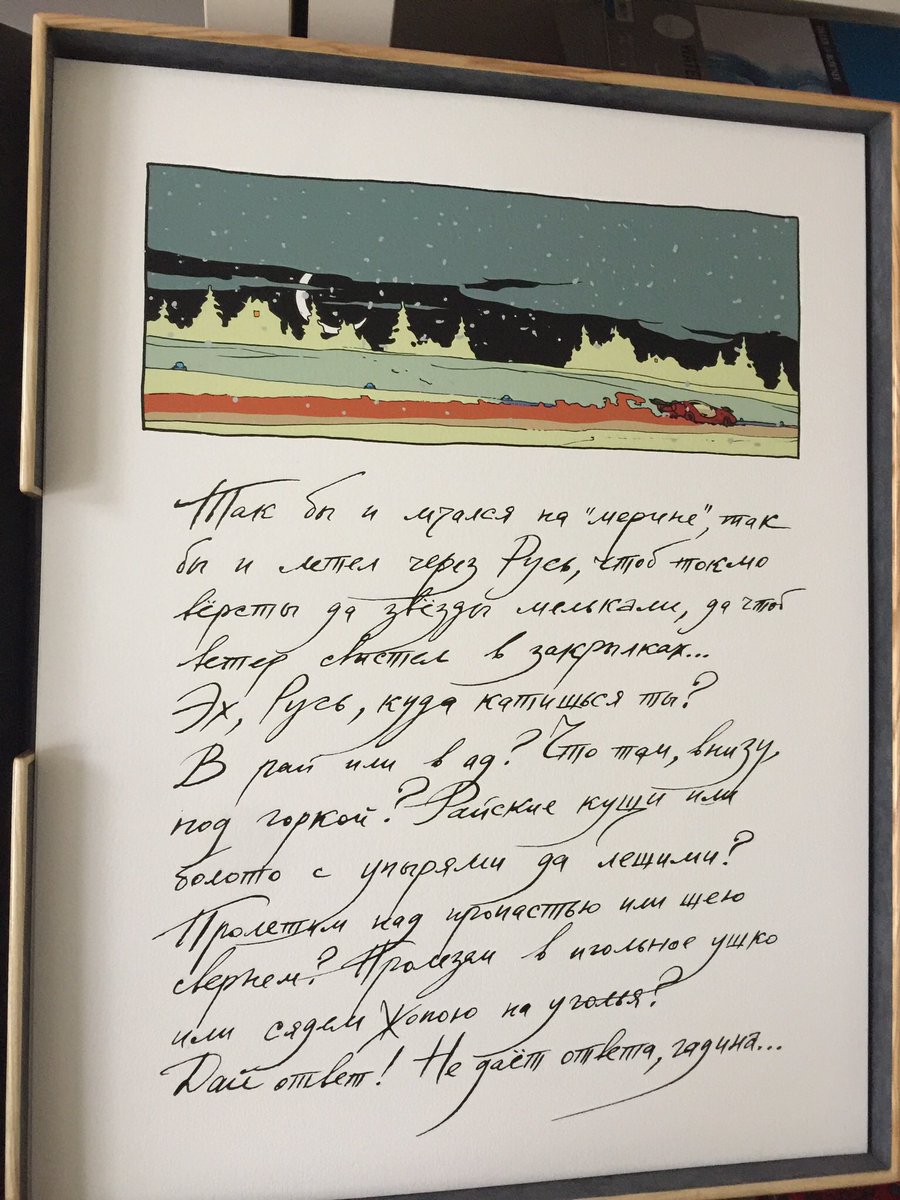 Так бы и мчался на "мерине", так
бы и летел через Русь, чтоб токмо
вёрсты да звёзды мелькали, да чтоб
ветер свистел в закрылках...
Эх, Русь, куда катишься ты?
В рай или в ад? Что там, внизу,
под горкой? Райские кущи или
болото с упырями да лешими?
Пролетим над пропастью или шею
свернем? Пролезем в игольное ушко
или сядем жопою на уголья?
Дай ответ! Не даёт ответа, гадина...